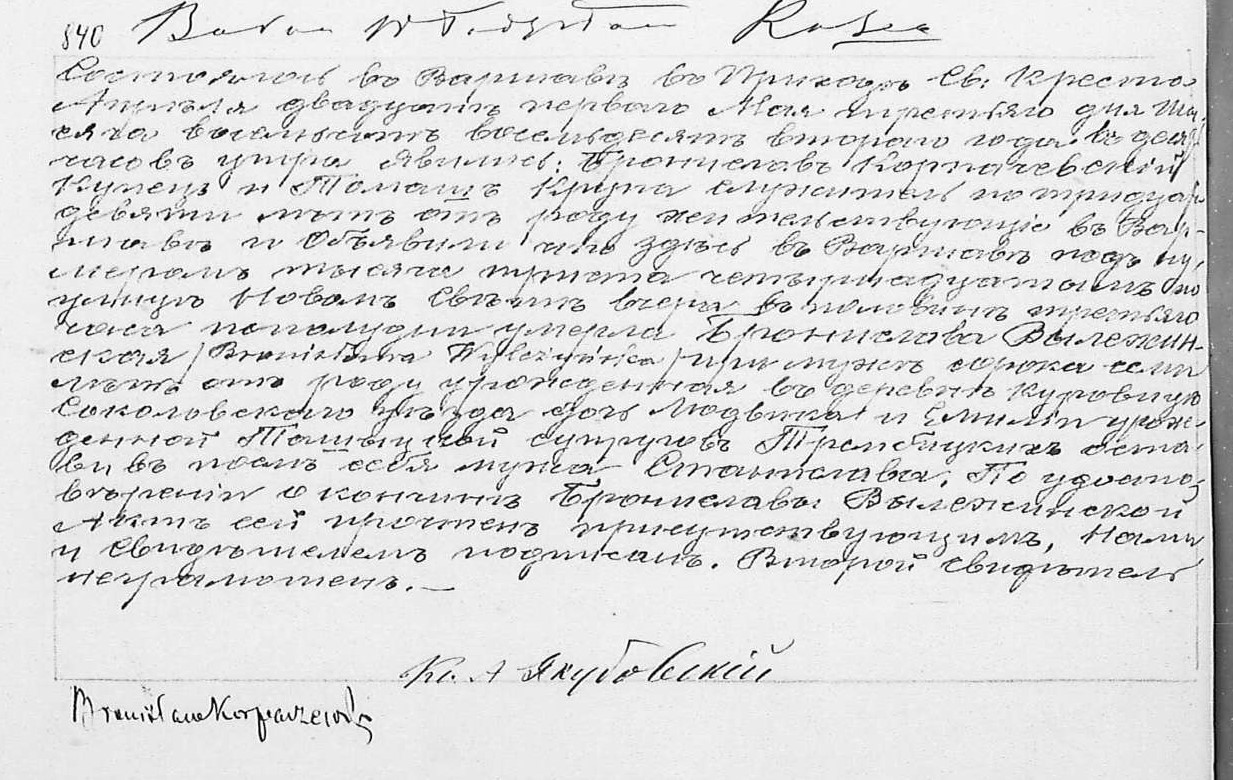 840
Состоялось въ Варшавѣ въ Приходѣ Св: Креста
Апрѣля двадцать перваго Мая третьяго дня ты-
сяча восемьсотъ восемьдесятъ втораго года въ деся
часовъ утра Явились: Брониславъ Корпачевскій
Купецъ и Томашъ Крупа служитель по тридцати
девяти лѣтъ отъ роду жительствующіе въ Вар-
шавѣ и Объявили что здѣсь въ Варшавѣ подъ ну-
меромъ тысяча триста четырнадцатымъ по
улицѣ Новомъ Свѣтѣ вчера въ половинѣ третьяго
часа пополудни умерла Бронислава Вылежин-
ская /Bronisława Wyleżyńska/ при мужѣ сорока семи
лѣтъ отъ роду урожденная въ деревнѣ
Соколовскаго уѣзда дочь Людвика и Емиліи урож-
денной супруговъ Трембицкихъ оста-
вивъ послѣ себя мужа Станислава. По удосто-
вѣреніи о кончинѣ Брониславы Вылежинской
Актъ сей прочтенъ присутствующимъ, Нами
и Свидѣтелемъ подписанъ. Второй свидѣтель
неграмотенъ.—
Кс. А Якубовскій
Bronisław